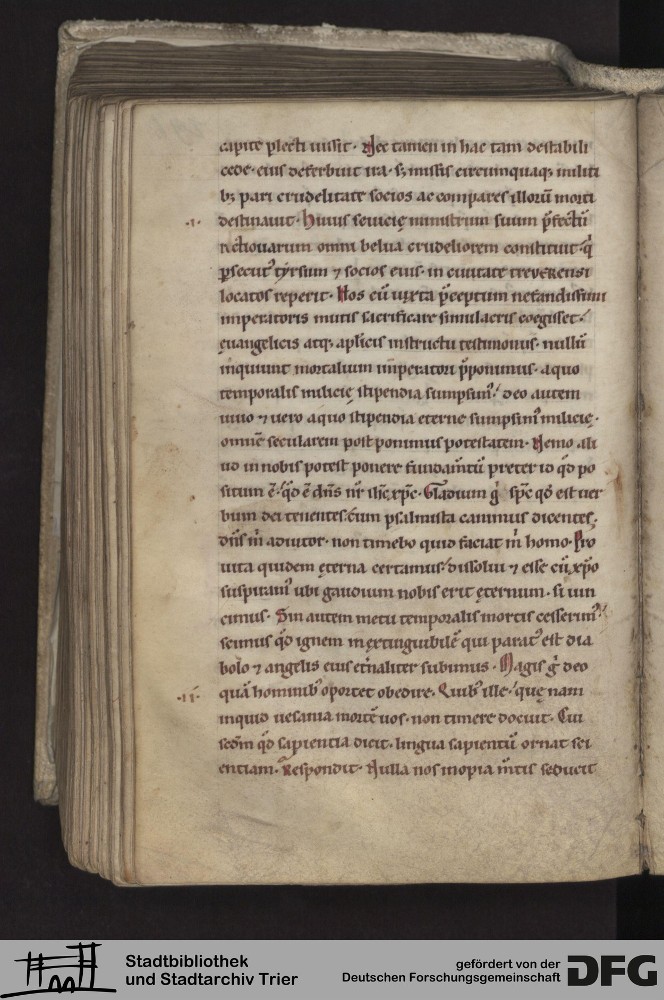 capite plecti iussit. Nec tamen in hac tam destabili
cede. eius deferbuit ira. sꝫ missis circumquaqꝫ militi
bꝫ pari crudelitate socios ac compares illorū morti
destinauit. Huius seuicię ministrum suum p̄fectū
.i.
rictiouarum omni belua crudeliorem constituit. q̄
ꝑsecutꝰ tyrsum ⁊ socios eius. in ciuitate treverensi
locatos reperit. Hos cū iuxta p̄ceptum nefandissimi
imperatoris mutis sacrificare simulacris coegisset.
ęuangelicis atqꝫ aplicis instructi testimoniis. nullū
inquiunt mortalium imperatori p̄ponimus. a quo
temporalis milicię stipendia sumpsimꝰ. deo autem
uiuo ⁊ uero a quo stipendia eterne sumpsimꝰ milicię.
omnē secularem postponimus potestatem. Nemo ali
ud in nobis potest ponere fundam̄tū preter id qd̄ po
situm ē. qd̄ ē dn̄s nr̄ ihc̄ xpc̄. Gladium g̊ spc̄ qd̄ est uer
bum dei tenentes. cum psalmista canimus dicentes.
dn̄s m̄ adiutor. non timebo quid faciat m̄ homo. Pro
uita quidem ęterna certamus. dissolui ⁊ esse cū xp̄o
suspiramꝰ ubi gaudium nobis erit ęternum. si uin
cimus. Sin autem metu temporalis mortis cesserimꝰ.
scimus qd̄ ignem inextinguibilē qui paratꝰ est dia
bolo ⁊ angelis eius et̄naliter subimus. Magis g̊ deo
quā hominibꝰ oportet obedire. Quibꝰ ille. quę nam
.ii.
inquid uesania mortē uos. non timere docuit. Cui
scdm̄ qd̄ sapientia dicit. lingua sapientū ornat sci
entiam. Respondit. Nulla nos inopia m̄tis seducit
Stadtbibliothek
und Stadtarchiv Trier
gefördert von der
Deutschen Forschungsgemeinschaft
DFG